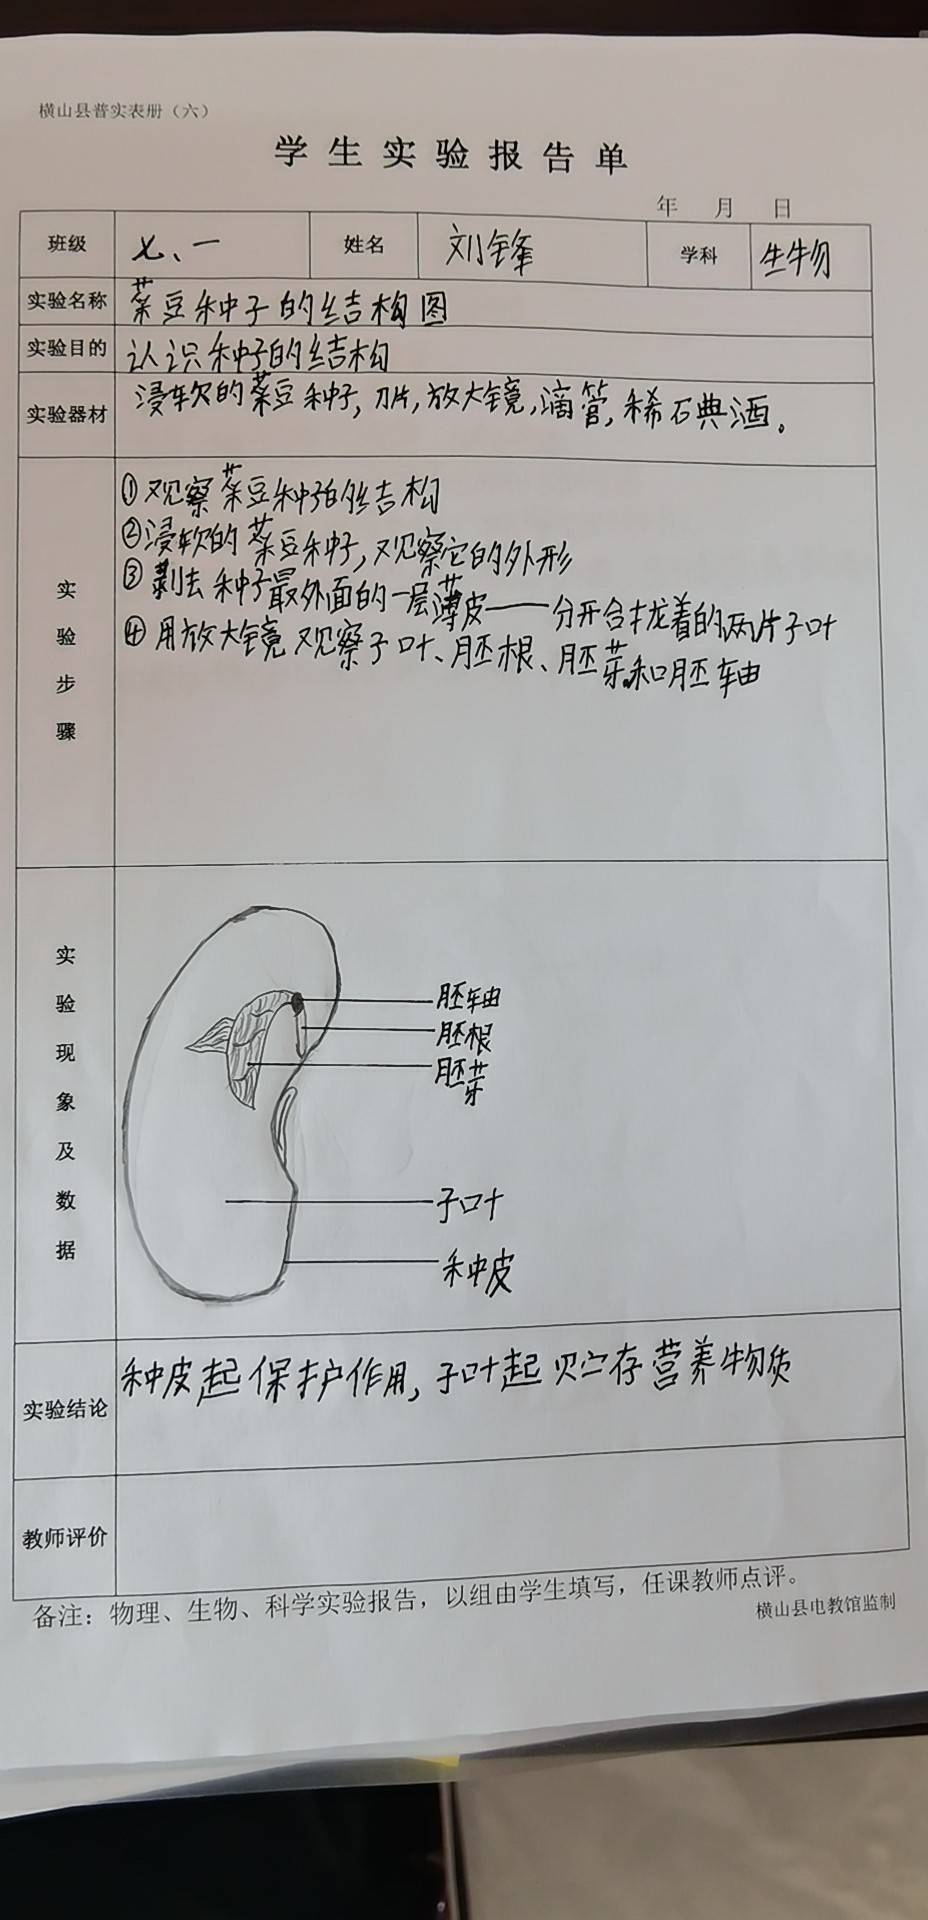 横山县普实表册（六）
学生实验报告单
年 月 日
班级 七、一 姓名 刘锋 学科 生物
实验名称 菜豆种子的结构图
实验目的 认识种子的结构
实验器材 浸软的菜豆种子,刀片,放大镜,滴管,稀石典酒。
实验步骤
①观察菜豆种子的结构
②浸软的菜豆种子,观察它的外形
③剥去种子最外面的一层薄皮——分开合拢着的两片子叶
④用放大镜观察子叶、胚根、胚芽和胚轴
实验现象及数据
胚轴
胚根
胚芽
子叶
种皮
实验结论 种皮起保护作用,子叶起贮存营养物质
教师评价
备注：物理、生物、科学实验报告，以组由学生填写，任课教师点评。
横山县电教馆监制